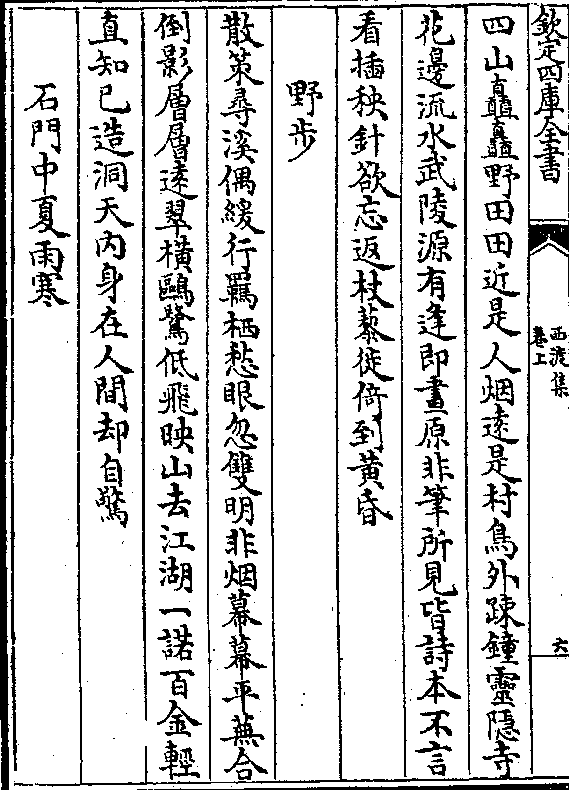 欽定四庫全書
西渡集
卷上
六
四山矗矗野田田近是人烟遠是村鳥外疎鐘靈隱寺
花邊流水武陵源有逢即畫原非筆所見皆詩本不言
看插秧針欲忘返杖藜徙倚到黃昏
野步
散策尋溪偶緩行羈栖愁眼忽雙明非烟幕幕平蕪合
倒影層層遠翠橫鷗驚低飛映山去江湖一諾百金輕
直知已造洞天内身在人間却自驚
石門中夏雨寒